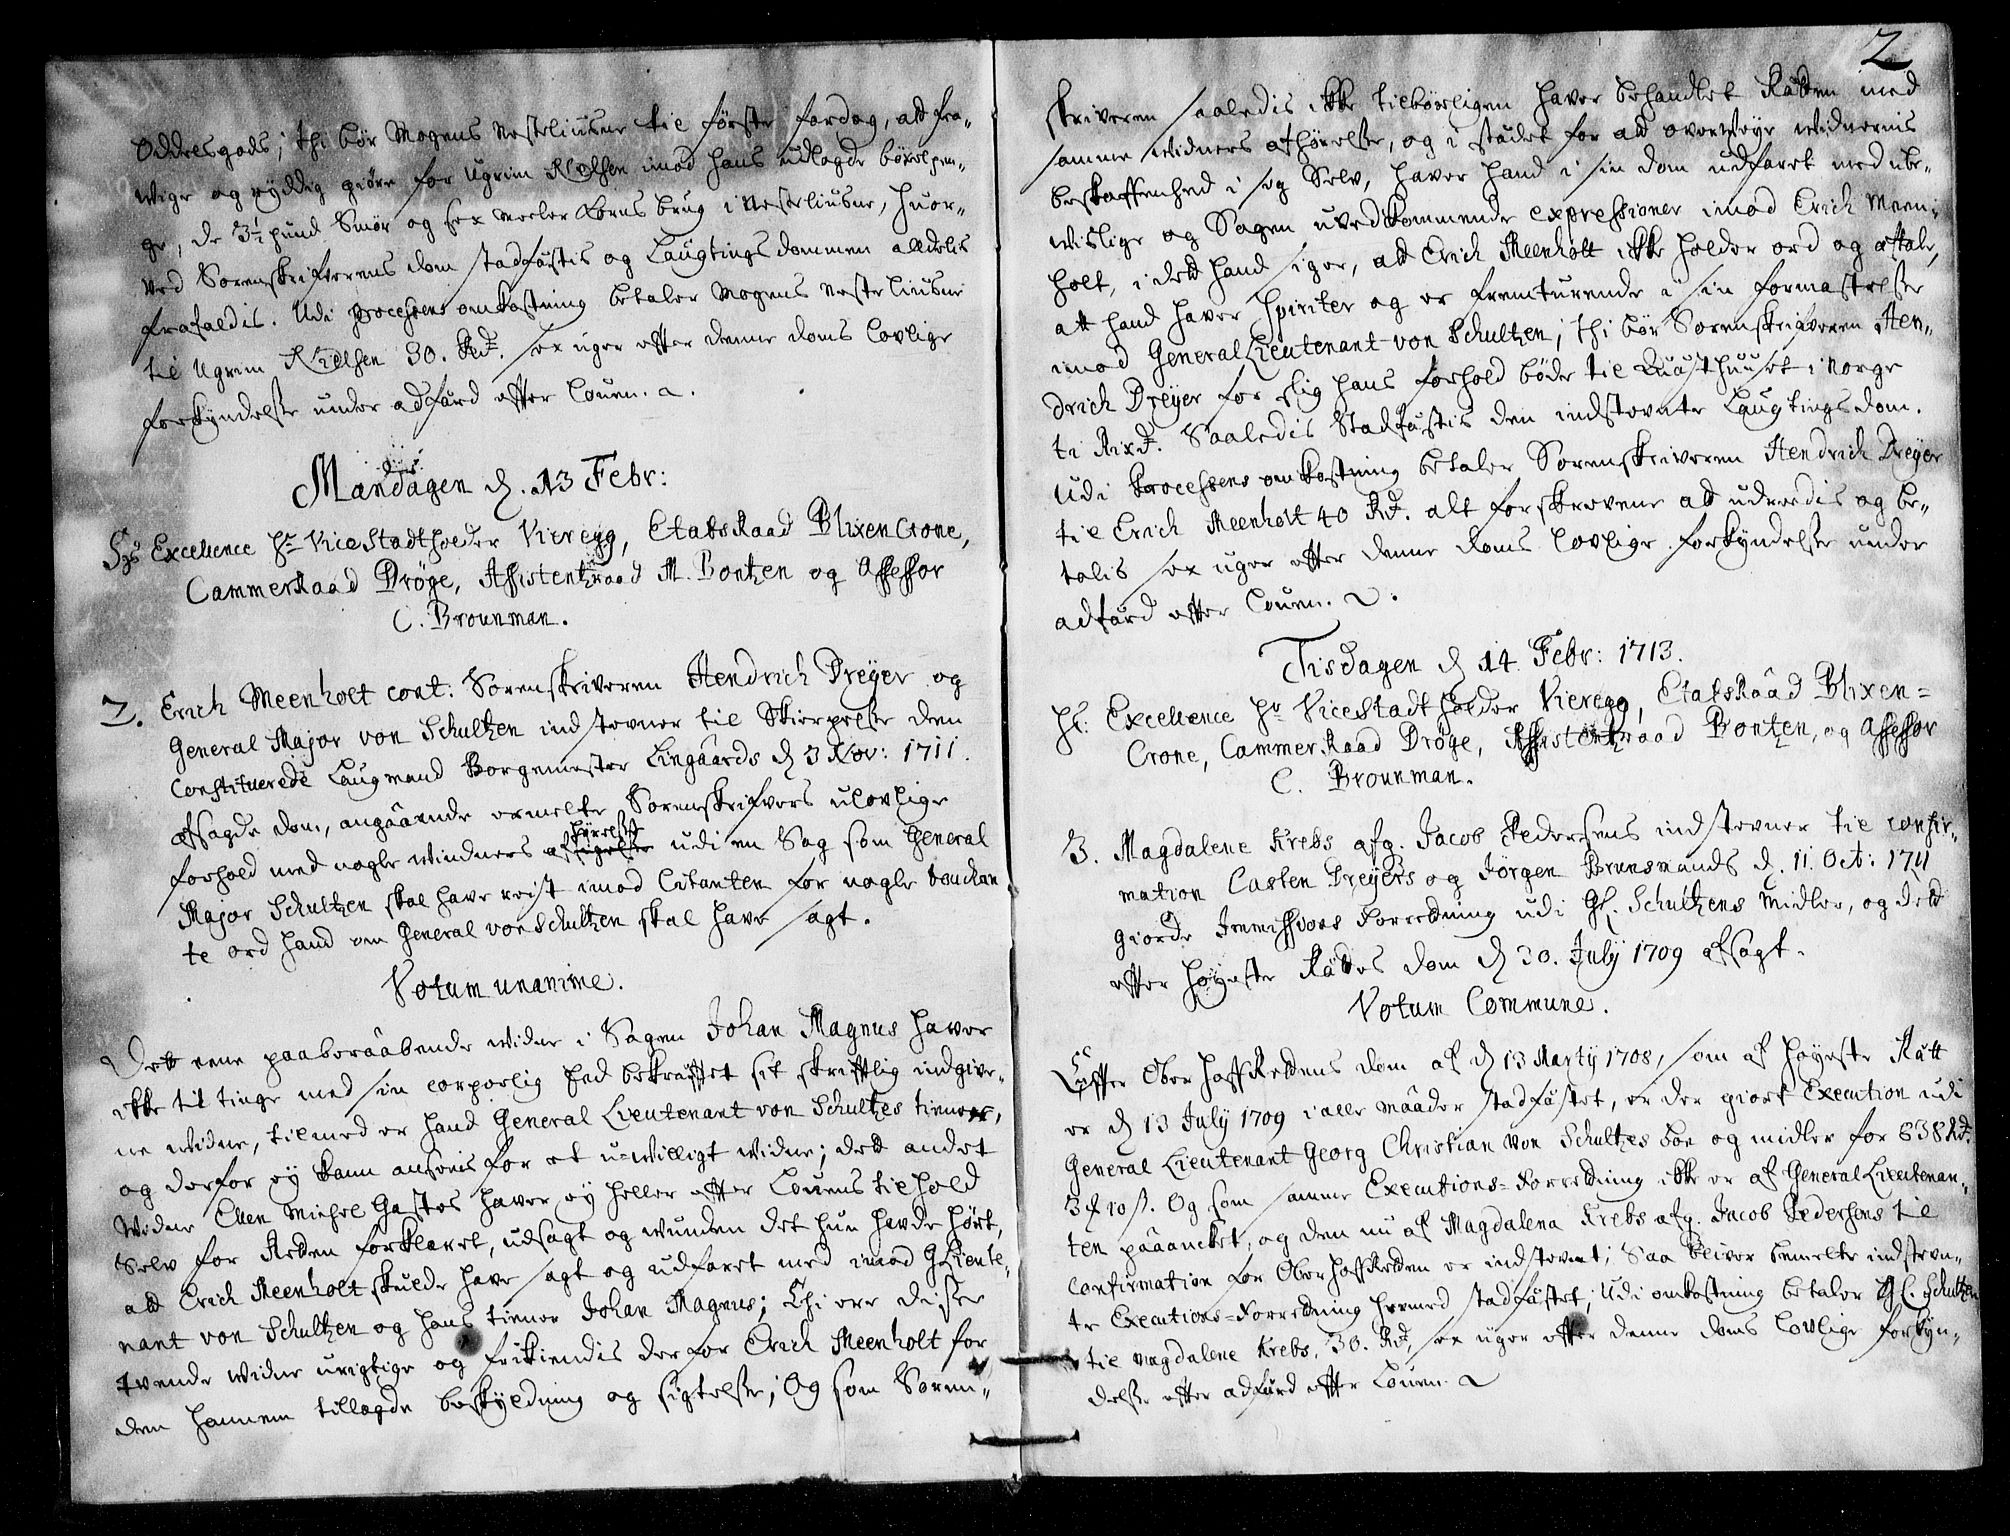 Oddelsgods; thi bør Mogens Nesteliusne til første fardag, att fra-
wige og ryddig giøre for Ugrim Nielsen imod hans udlagde böxelpen-
ge, de 3½ pund Smör og sex Meeler Korns brug i Nesteliusne, huor-
ved Sorenskrifverens dom stadfæstis og Laugtings dommen alldelis
frafaldis. Udi processens omkostning betaler Mogens Nesteliusne
til Ugrim Nielsen 30. Rd. sex uger efter denne doms lovlige
forkyndelse under adfærd efter Louen.
Mandagen d. 13 Febr:
Hs Excellence Hr ViceStadtholder Vieregg, EtatsRaad Blixencrone,
CammerRaad Dröge, Assistentzraad M. Bontzen og Assessor
C. Brounman.
2. Erich Meenholt cont: Sorenskriveren Hendrich Dreyer og
General Major von Schultzen indstevner til Skierpelse den
Constituerede Laugmand Borgemester Lingaards d. 3 Nov: 1711.
afsagde dom, angaaende ermelte Sorenskrifvers ulovlige
forhold med nogle windners afhörelse udi en Sag som General
Major Schultzen skal have reist imod Citanten for nogle touchan
te ord hand om General von Schultzen skal have sagt.
Votum unanime.
Dett eene paaberaabende widne i Sagen Johan Magnus haver
ikke til tinge med sin corporlig Eed bekræftet sit skriftlig indgive-
ne widne, tilmed er hand General Lieutenant von Schultzes tiener,
og derfor ey kann ansees for et u-willigt widne; dett andet
widne Ellen Michel Gastes haver ey heller efter Louens tilhold
selv for Retten forklaret, udsagt og wunden det hun havde hört,
att Erich Meenholt skulde have sagt og udfaret med imod GLieute-
nant von Schultzen og hans tiener Johan Magnus; Thi ere disse
tvende widne urigtige og frikiendis derfor Erich Meenholt for
den hannem tillagde beskyldning og sigtelse; Og som Soren-
2
skriveren saaledis ikke tilbörligen haver behandlet Rätten med
samme widners afhörelse, og i stædet for att overweye widnernis
beskaffenhed i sig Selv, haver hand i sin dom udfaret med ube-
wislige og Sagen uvedkommende expressioner imod Erich Meen-
holt, i dett hand siger, att Erich Meenholt ikke holder ord og aftale,
att hand haver Spiriter og er fremturende i sin formastelse
imod General Lieutenant von Schultzen; thi bör Sorenskrifveren Hen-
drich Dreyer for slig hans forhold böde til Quæsthuuset i Norge
ti Rixd. Saaledis Stadfæstis den indstevnte Laugtingsdom.
Udi Processens omkostning betaler Sorenskriveren Hendrich Dreyer
til Erich Meenholt 40 Rd. alt forskrevene att udredis og be-
talis sex uger efter denne Doms lovlige forkyndelse under
adfærd efter Louen.
Tisdagen d 14. Febr: 1713.
Hs: Excellence Hr ViceStadtholder Vieregg, EtatsRaad Blixen=
Crone, CammerRaad Dröge, Assistentzraad Bontzen, og Assessor
C. Brounman.
3. Magdalene Krebs afg. Jacob Pedersens indstevner til confir-
mation Casten Dreyers og Jörgen Brunsmands d. 11. Oct: 1711
giorde Immissions Forretning udi Gl. Schultzens Midler, og dett
efter Höyeste Rättes dom d 30. July 1709 afsagt.
Votum Commune.
Efter Ober HoffRettens dom af d 13 Marty 1708, som af Höyeste Rätt
er d 13 July 1709 i alle maader stadfæstet, er der giort Execution udi
General Lieutenant Georg Christian von Schultzes boe og midler for 638 Rd.
3 ₰ 10 β. Og som samme Executions=Forretning ikke er af General Lieutenan-
ten paaancket, og den nu af Magdalena Krebs afg. Jacob Pedersens til
confirmation for Ober Hoff Retten er indstevnt; Saa bliver bemelte indstevn-
te Executions=Forretning hermed stadfæstet; Udi omkostning betaler Gl. Schultzen
til Magdalene Krebs, 30. Rd, sex uger efter denne doms lovlige forkyn-
delse efter adfærd efter Louen.